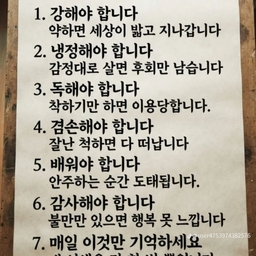 1. 강해야 합니다
약하면 세상이 밟고 지나갑니다
2. 냉정해야 합니다
감정대로 살면 후회만 남습니다
3. 독해야 합니다
착하기만 하면 이용당합니다.
4. 겸손해야 합니다
잘난 척하면 다 떠납니다
5. 배워야 합니다
안주하는 순간 도태됩니다.
6. 감사해야 합니다
불만만 있으면 행복 못 느낍니다
7. 매일 이것만 기억하세요